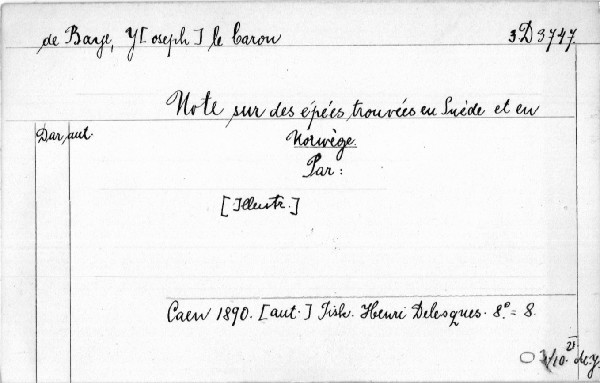 de Baye, J[oseph] le baron 3D3747.
Note sur des épées, trouvées en Suède et en
Norwège.
Dar, aut.
Par:
[Illustr.]
Caen 1890. [aut.] Tisk. Henri Delesques. 8.° = 8.